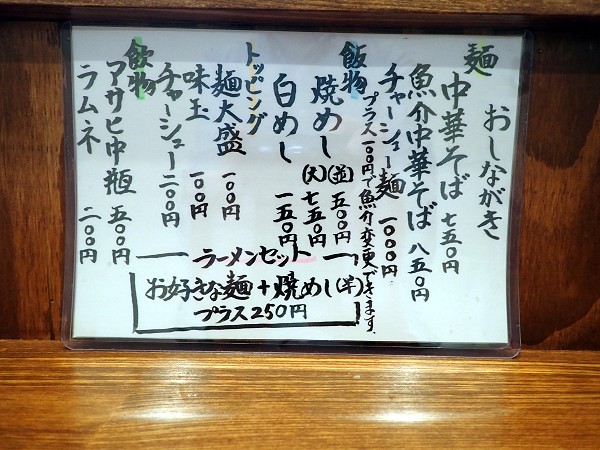 おしながき
麺
中華そば 七五〇円
魚介中華そば 八五〇円
チャーシュー麺 一〇〇〇円
プラス一〇〇円で魚介変更できます。
飯物
焼めし (並) 五〇〇円
(大) 七五〇円
白めし 一五〇円
トッピング
麺大盛 一〇〇円
味玉 一〇〇円
チャーシュー 二〇〇円
飲物
アサヒ中瓶 五〇〇円
ラムネ 二〇〇円
ラーメンセット
お好きな麺+焼めし(半)
プラス250円